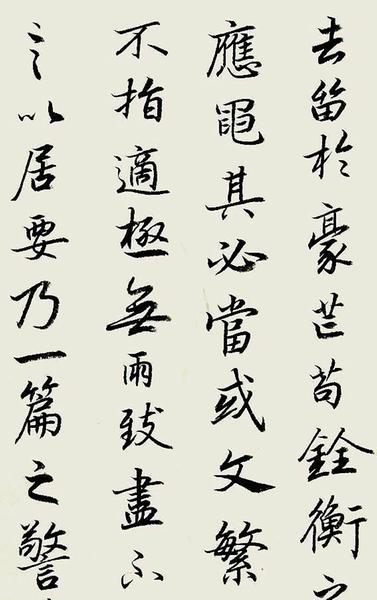 去留於豪芒苟銓衡之
應黽其必當或文繁
不指適極無兩致盡不
言以居要乃一篇之警